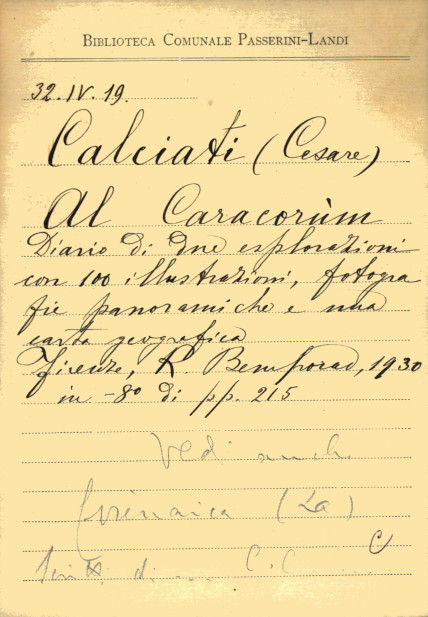 BIBLIOTECA COMUNALE PASSERINI-LANDI
32.IV.19.
Calciati (Cesare)
Al Caracorùm
Diario di due esplorazioni
con 100 illustrazioni, fotogra
fie panoramiche e una
carta geografica
Firenze, R. Bemporad, 1930
in -8º di pp. 215
Vedi anche
Cirenaica (La)
C
Scritti di C. C.